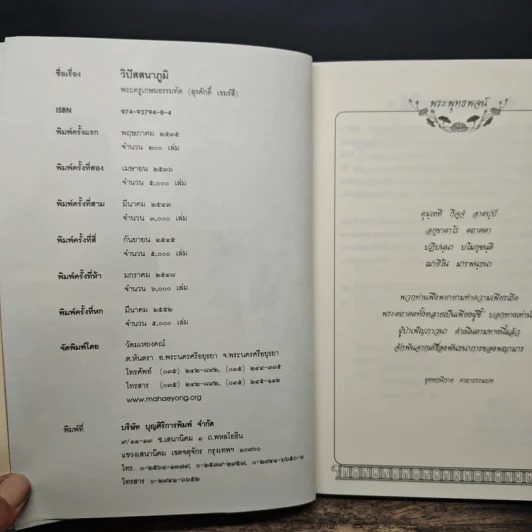 ชื่อเรื่อง วิปัสสนาภูมิ
พระครูเกษมธรรมทัต (สุรศักดิ์ เขมรํสี)
ISBN 974-92794-8-4
พิมพ์ครั้งแรก พฤษภาคม ๒๕๓๕
จำนวน ๒๐๐ เล่ม
พิมพ์ครั้งที่สอง เมษายน ๒๕๓๖
จำนวน ๕,๐๐๐ เล่ม
พิมพ์ครั้งที่สาม มีนาคม ๒๕๔๓
จำนวน ๓,๐๐๐ เล่ม
พิมพ์ครั้งที่สี่ กันยายน ๒๕๔๕
จำนวน ๕,๐๐๐ เล่ม
พิมพ์ครั้งที่ห้า มกราคม ๒๕๔๘
จำนวน ๖,๐๐๐ เล่ม
พิมพ์ครั้งที่หก มีนาคม ๒๕๕๒
จำนวน ๕,๐๐๐ เล่ม
จัดพิมพ์โดย วัดมเหยงคณ์
ต.หันตรา อ.พระนครศรีอยุธยา จ.พระนครศรีอยุธยา
โทรศัพท์ (๐๓๕) ๒๔๒-๘๙๒, (๐๓๕) ๒๔๔-๓๓๕
โทรสาร (๐๓๕) ๒๔๒-๘๙๒, (๐๓๕) ๒๔๕-๑๑๒
www.mahaeyong.org
พิมพ์ที่ บริษัท บุญศิริการพิมพ์ จำกัด
๙/๑๑-๑๓ ซ.เสนานิคม ๑ ถ.พหลโยธิน
แขวงเสนานิคม เขตจตุจักร กรุงเทพฯ ๑๐๙๐๐
โทร. ๐-๒๕๖๑-๑๓๗๙, ๐-๒๕๗๙-๒๙๕๗, ๐-๒๙๔๑-๖๖๕๐-๑
โทรสาร ๐-๒๙๔๑-๖๖๕๒
พระพุทธพจน์
ตุมฺเหหิ กิจฺจํ อาตปฺปํ
อกฺขาตาโร ตถาคตา
ปฏิปนฺนา ปโมกฺขนฺติ
ฌายิโน มารพนฺธนา
พวกท่านพึงพยายามทำความเพียรเถิด
พระตถาคตทั้งหลายเป็นเพียงผู้ชี้ บอกทางเท่านั้น
ผู้บำเพ็ญภาวนา ดำเนินตามทางนี้แล้ว
จักพ้นจากเครื่องพันธนาการของพญามาร